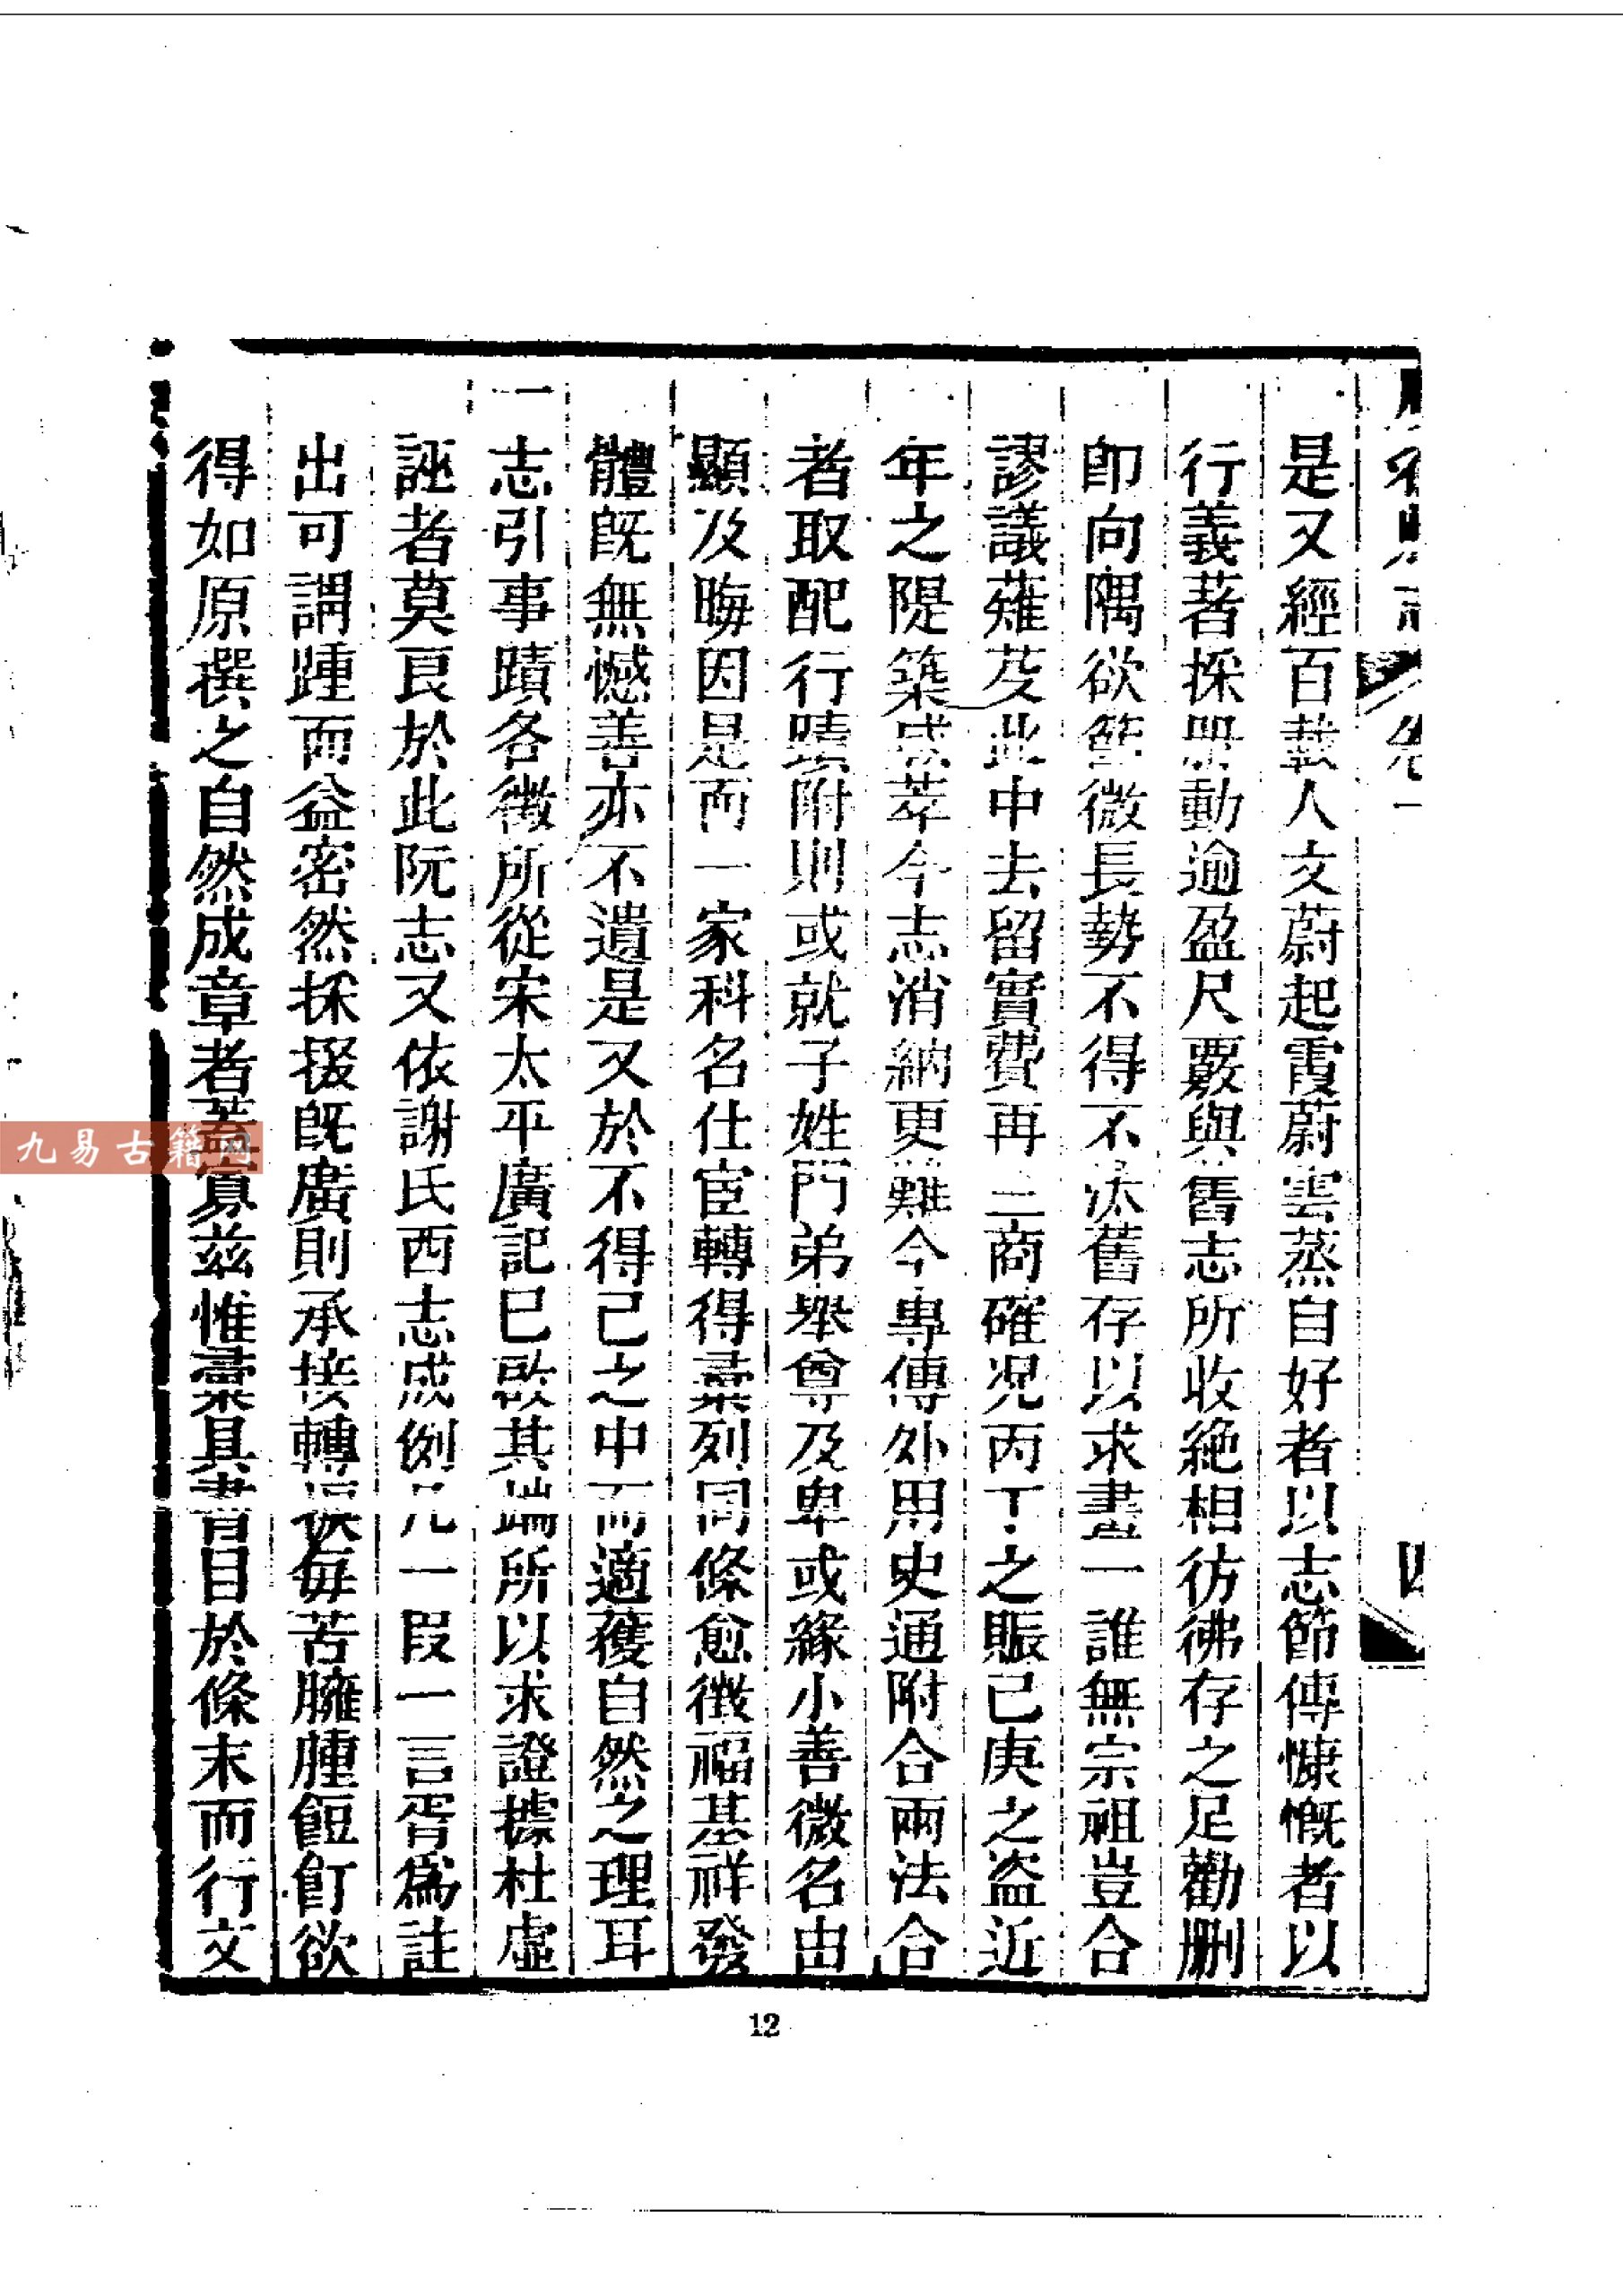 是又經百載人文蔚起霞蔚雲蒸自好者以志節傳慷慨者以
行義著採册動逾盈尺覈與舊志所收絶相彷彿存之足勸删
卽向隅欲管微長勢不得不汰舊存以求畫一誰無宗祖豈合
謬議薙芟此中去留實費再三商確况丙丁之賑已庚之盗近
年之隄築咸萃今志消納更難今專傳外用史通附合兩法合
者取配行蹟附則或就子姓門弟舉尊及卑或緣小善微名由
顯及晦因是而一家科名仕宦轉得彙列同條愈徴福基祥發
體旣無憾善亦不遺是又於不得已之中而適獲自然之理耳
一志引事蹟各徵所從宋太平廣記已啟其端所以求證據杜虛
誣者莫良於此阮志又依謝氏西志成例凡一段一言胥爲註
出可謂踵而益密然採掇旣廣則承接轉換每苦臃腫餖飣欲
得如原撰之自然成章者蓋寡兹惟彙具書目於條末而行文
卷一
四
12
九易古籍网